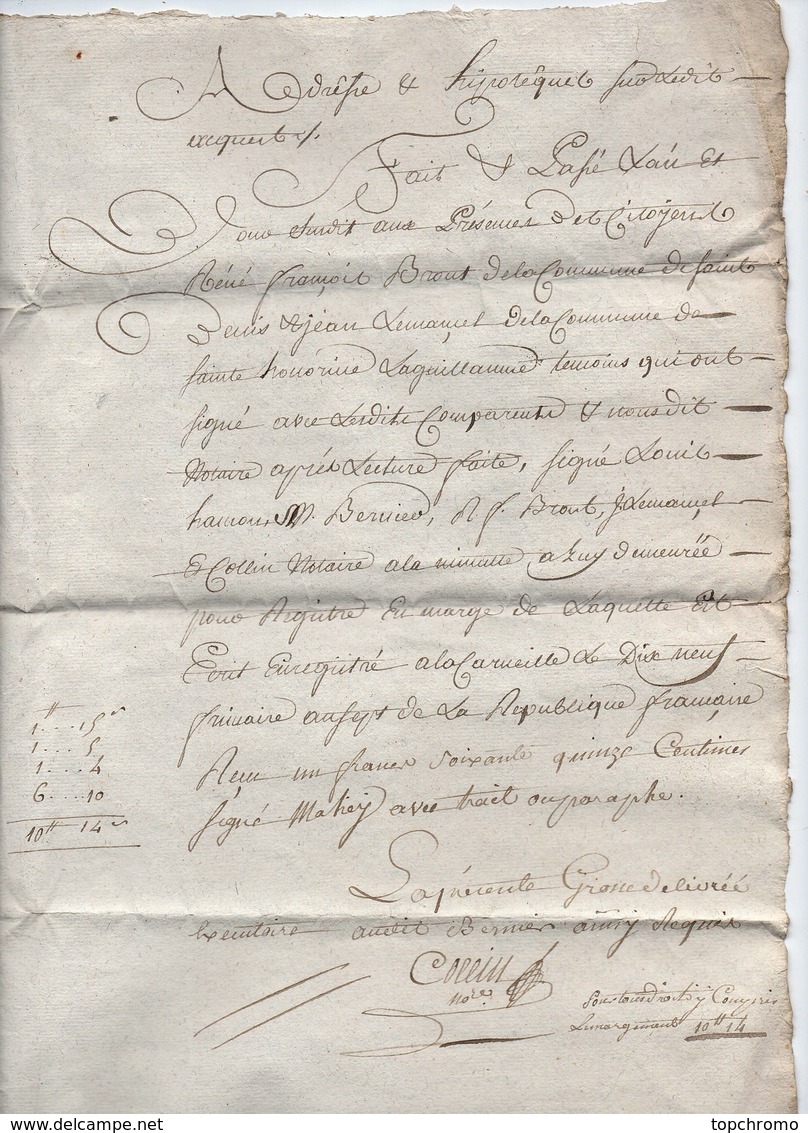 Adrêsse & hipotêques sur Ledit
acquest /.
Fait & Passé L'an Et
Jour Susdit aux Présences des Citoyens
Réné françois Brout de la Commune de Saint
Denis & jean Lemancel de la Commune de
Sainte honorine Laguillaume temoins qui ont
signé avec Lesdits Comparents & nous dit
Notaire aprés Lecture faite, signé Louis
hamon, M. Bernier, R f. Brout, j Lemancel
Et Collin Notaire a la minutte a Luy demeurée
pour Registre En marge de Laquelle Est
Ecrit Enregistré a la Carneille Le Dix neuf
frimaire an sept de La Republique francaise
Reçu un franc soixante quinze Centimes
signé Mahey avec trait ou paraphe.
1# .... 15s
1 .... 5
1 .... 4
6 .... 10
10# 14s
La présente Grosse delivrée
Exécutoire audit Bernier ainsy Requis
Collin
Nore.
Pour tous droits y Compris
Lemargement 10# 14
delcampe.net
topchromo